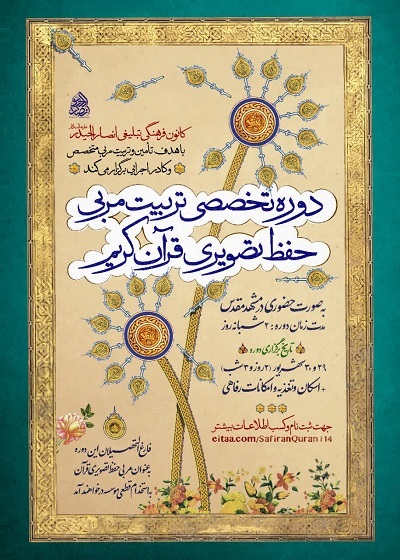 کانون فرهنگی تبلیغی انصار الحیدر
با هدف تامین و تربیت مربی متخصص
و کادر اجرایی برگزار می‌کند
دوره تخصصی تربیت مربی
حفظ تصویری قرآن کریم
به صورت حضوری در مشهد مقدس
مدت زمان دوره: ۲ شبانه روز
تاریخ برگزاری دوره
۲۹ و ۳۰ شهریور (۲ روز و ۳ شب)
+ اسکان و تغذیه و امکانات رفاهی
جهت ثبت نام و کسب اطلاعات بیشتر
eitaa.com/SafiranQuran114
فارغ التحصیلان این دوره
به عنوان مربی حفظ تصویری قرآن
به استخدام قطعی موسسه در خواهند آمد